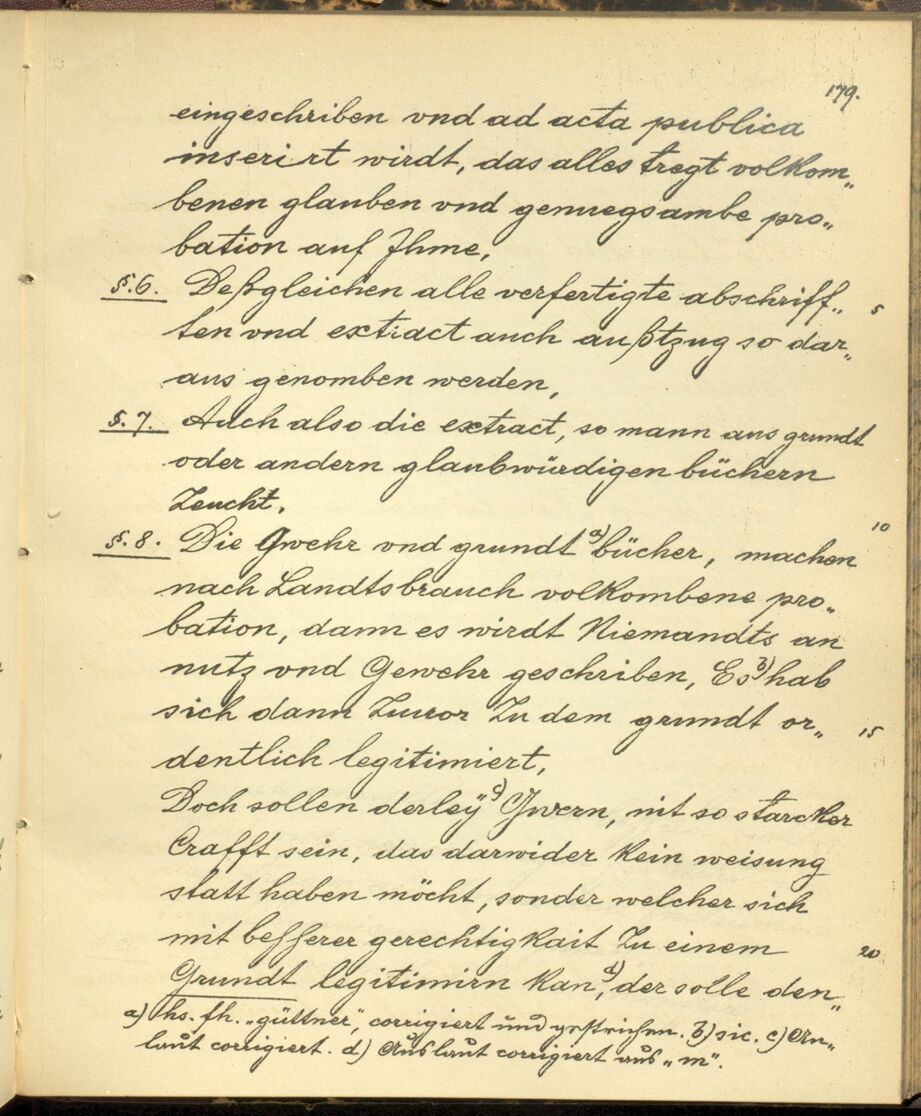 179.
eingeschriben vnd ad acta publica
inserirt wirdt, das alles tregt volkom„
benen glauben vnd genuegsambe pro„
bation auf Ihme,
§. 6. Deßgleichen alle verfertigte abschriff„ 5
ten vnd extract auch außtzug so dar„
aus genomben werden,
§. 7. Auch also die extract, so mann aus grundt
oder andern glaubwürdigen büchern
Zeucht.
10
§. 8. Die Gwehr vnd grundt a) bücher, machen
nach Landtsbrauch volkombene pro„
bation, dann es wirdt Niemandts an
nutz vnd Gewehr geschriben, Es b) hab
sich dann Zuuor Zu dem grundt or„ 15
dentlich legitimiert,
Doch sollen derleÿ c) Gwern, nit so starcker
Crafft sein, das darwider kein weisung
statt haben möcht, sonder welcher sich
mit besserer gerechtigkait Zu einem 20
Grundt legitimirn kan d), der solle den„
a) hs. fh. „güttner“, corrigiert und gestrichen. b) sic. c) An„
laut corrigiert. d) Auslaut corrigiert aus „m“.